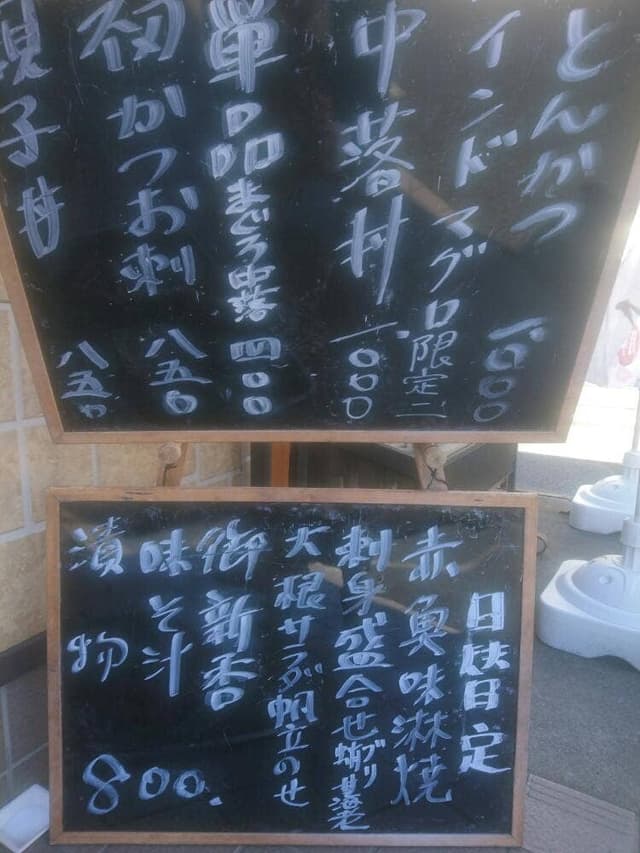 とんかつ 一、000
インドマグロ限定二
中落丼 一、000
單品まぐろ中落 四00
初かつお刺 八五0
親子丼 八五0
日替定
赤魚味淋焼
刺身盛合せ ブリ
大根サラダ帆立のせ
御新香
味そ汁
漬物
800.